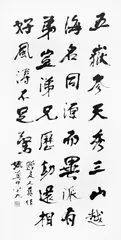 五嶽參天秀三山越
海名同源而異派有
弟豈兄歷劫還相
好風濤不足驚